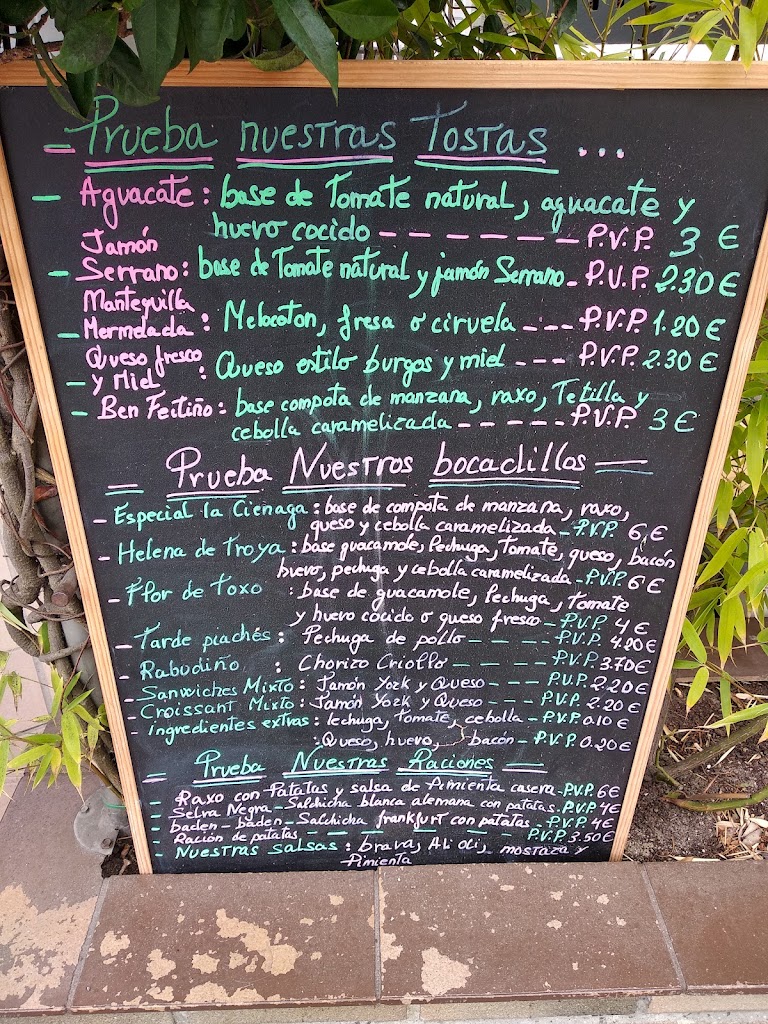 – Prueba nuestras Tostas ...
– Aguacate : base de Tomate natural, aguacate y
huevo cocido – – – – – – P.V.P. 3 €
Jamón
– Serrano : base de Tomate natural y jamón Serrano – P.V.P. 2.30 €
Mantequilla
– Mermelada : Melocoton, fresa o ciruela – – – P.V.P. 1.20 €
Queso fresco
– y Miel : Queso estilo burgos y miel – – – P.V.P. 2.30 €
– Ben Feitiño : base compota de manzana, raxo, Tetilla y
cebolla caramelizada – – – – – P.V.P. 3 €
– Prueba Nuestros bocadillos –
– Especial la Cienaga : base de compota de manzana, raxo,
queso y cebolla caramelizada – P.V.P. 6 €
– Helena de Troya : base guacamole, lechuga, Tomate, queso, bacón
huevo, pechuga y cebolla caramelizada – P.V.P 6 €
– Flor de Toxo : base de guacamole, lechuga, tomate
y huevo cocido o queso fresco – P.V.P 4 €
– Tarde piachés : Pechuga de pollo – – – – P.V.P. 4.20 €
– Rabudiño : Chorizo Criollo – – – – P.V.P. 3.70 €
– Sanwiches Mixto : Jamón York y Queso – – – P.V.P. 2.20 €
– Croissant Mixto : Jamón York y Queso – – – P.V.P. 2.20 €
– Ingredientes extras : lechuga, tomate, cebolla – P.V.P. 0.10 €
: Queso, huevo, bacón – P.V.P. 0.20 €
– Prueba Nuestras Raciones –
– Raxo con Patatas y salsa de Pimienta casera – P.V.P. 6 €
– Selva Negra – Salchicha blanca alemana con patatas – P.V.P 4 €
– baden – baden – Salchicha frankfurt con patatas – P.V.P 4 €
– Ración de patatas – – – – – – P.V.P 3.50 €
– Nuestras salsas : brava, Ali oli, mostaza y
Pimienta